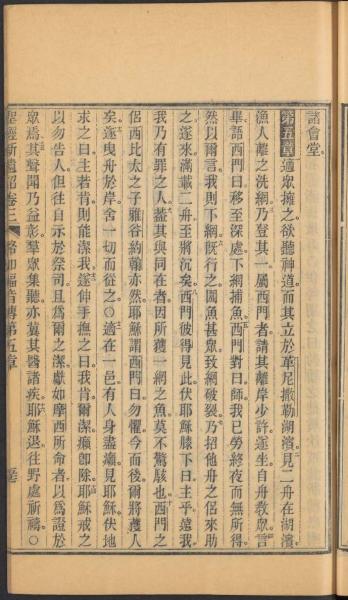 諸會堂。
第五章 適眾擁之欲聽神道而其立於革尼撒勒湖濱。見二舟在湖濱。
漁人離之洗網。乃登其一屬西門者請其離岸少許。遂坐自舟教眾。言
畢語西門曰。移至深處。下網捕魚。西門對曰。師。我已勞終夜而無所得。
然以爾言。我則下網。既行之。圍魚甚眾。致網破裂。乃招他舟之侶來助
之。遂來。滿載二舟至將沉矣。西門彼得見此。伏耶穌膝下曰。主乎。遠我。
我乃有罪之人。蓋其與同在者因所獲一網之魚。莫不驚駭也。西門之
侶西比太之子雅谷約翰亦然。耶穌謂西門曰。勿懼。今而後爾將獲人
矣。遂曳舟於岸。舍一切而從之。〇適在一邑。有人身盡癩。見耶穌伏地
求之曰。主若肯則能潔我。遂伸手撫之曰。我肯。爾潔。癩卽除。耶穌戒之
以勿告人。但往自示於祭司。且為爾之潔。獻如摩西所命者。以為證於
眾焉。其聲聞乃益彰。羣眾集聽。亦冀其醫諸疾。耶穌退往野處祈禱。〇
聖經新遺詔卷三 路加福音傳第五章